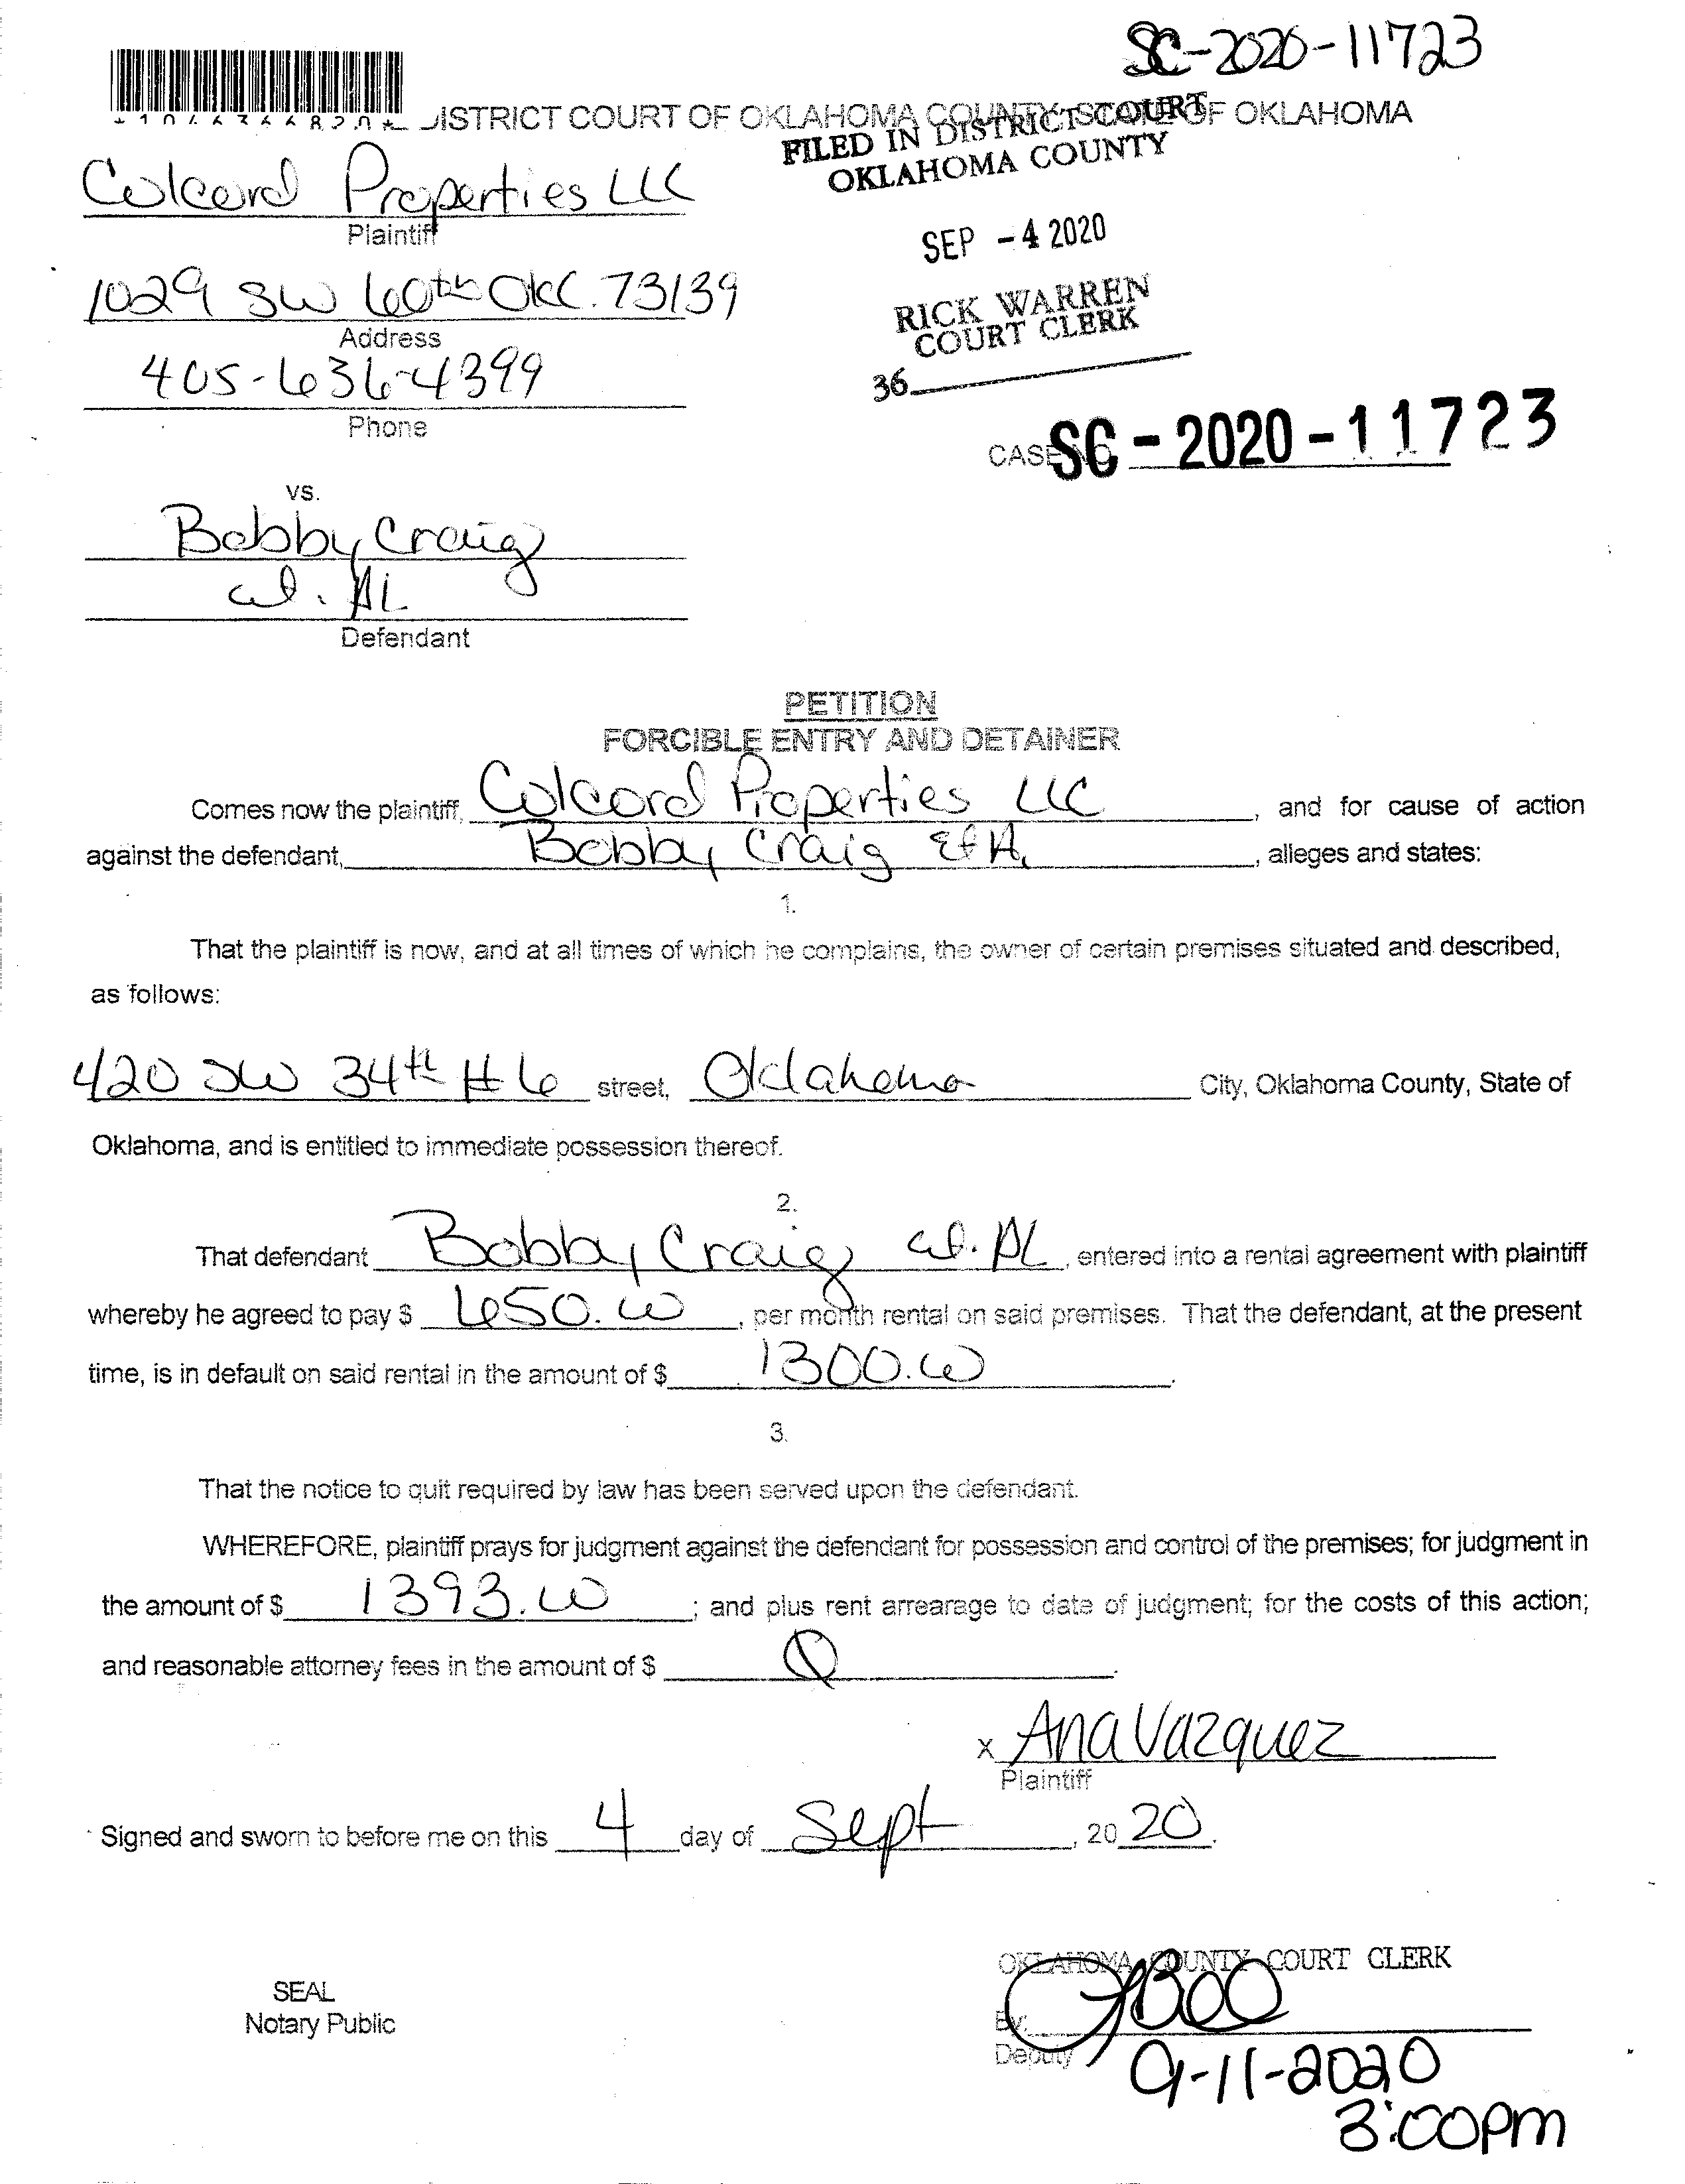 SC-2020-11723
*1046366820* DISTRICT COURT OF OKLAHOMA COUNTY, STATE OF OKLAHOMA
FILED IN DISTRICT COURT
OKLAHOMA COUNTY
Colcord Properties LLC
Plaintiff
SEP -4 2020
1029 SW 60th OKC. 73139
Address
RICK WARREN
COURT CLERK
405-636-4399
Phone
36
CASE NO. SC-2020-11723
vs.
Bobby Craig
AL
Defendant
PETITION
FORCIBLE ENTRY AND DETAINER
Comes now the plaintiff, Colcord Properties LLC, and for cause of action
against the defendant, Bobby Craig, alleges and states:
1.
That the plaintiff is now, and at all times of which he complains, the owner of certain premises situated and described,
as follows:
420 SW 34th #6 street, Oklahoma City, Oklahoma County, State of
Oklahoma, and is entitled to immediate possession thereof.
2.
That defendant Bobby Craig AL, entered into a rental agreement with plaintiff
whereby he agreed to pay $ 650.00, per month rental on said premises. That the defendant, at the present
time, is in default on said rental in the amount of $ 1300.00.
3.
That the notice to quit required by law has been served upon the defendant.
WHEREFORE, plaintiff prays for judgment against the defendant for possession and control of the premises; for judgment in
the amount of $ 1393.00; and plus rent arrearage to date of judgment; for the costs of this action;
and reasonable attorney fees in the amount of $ 0.
x Ana Vazquez
Plaintiff
Signed and sworn to before me on this 4 day of Sept, 2020.
OKLAHOMA COUNTY COURT CLERK
SEAL
Notary Public
By:
Deputy
9-11-2020
3:00pm